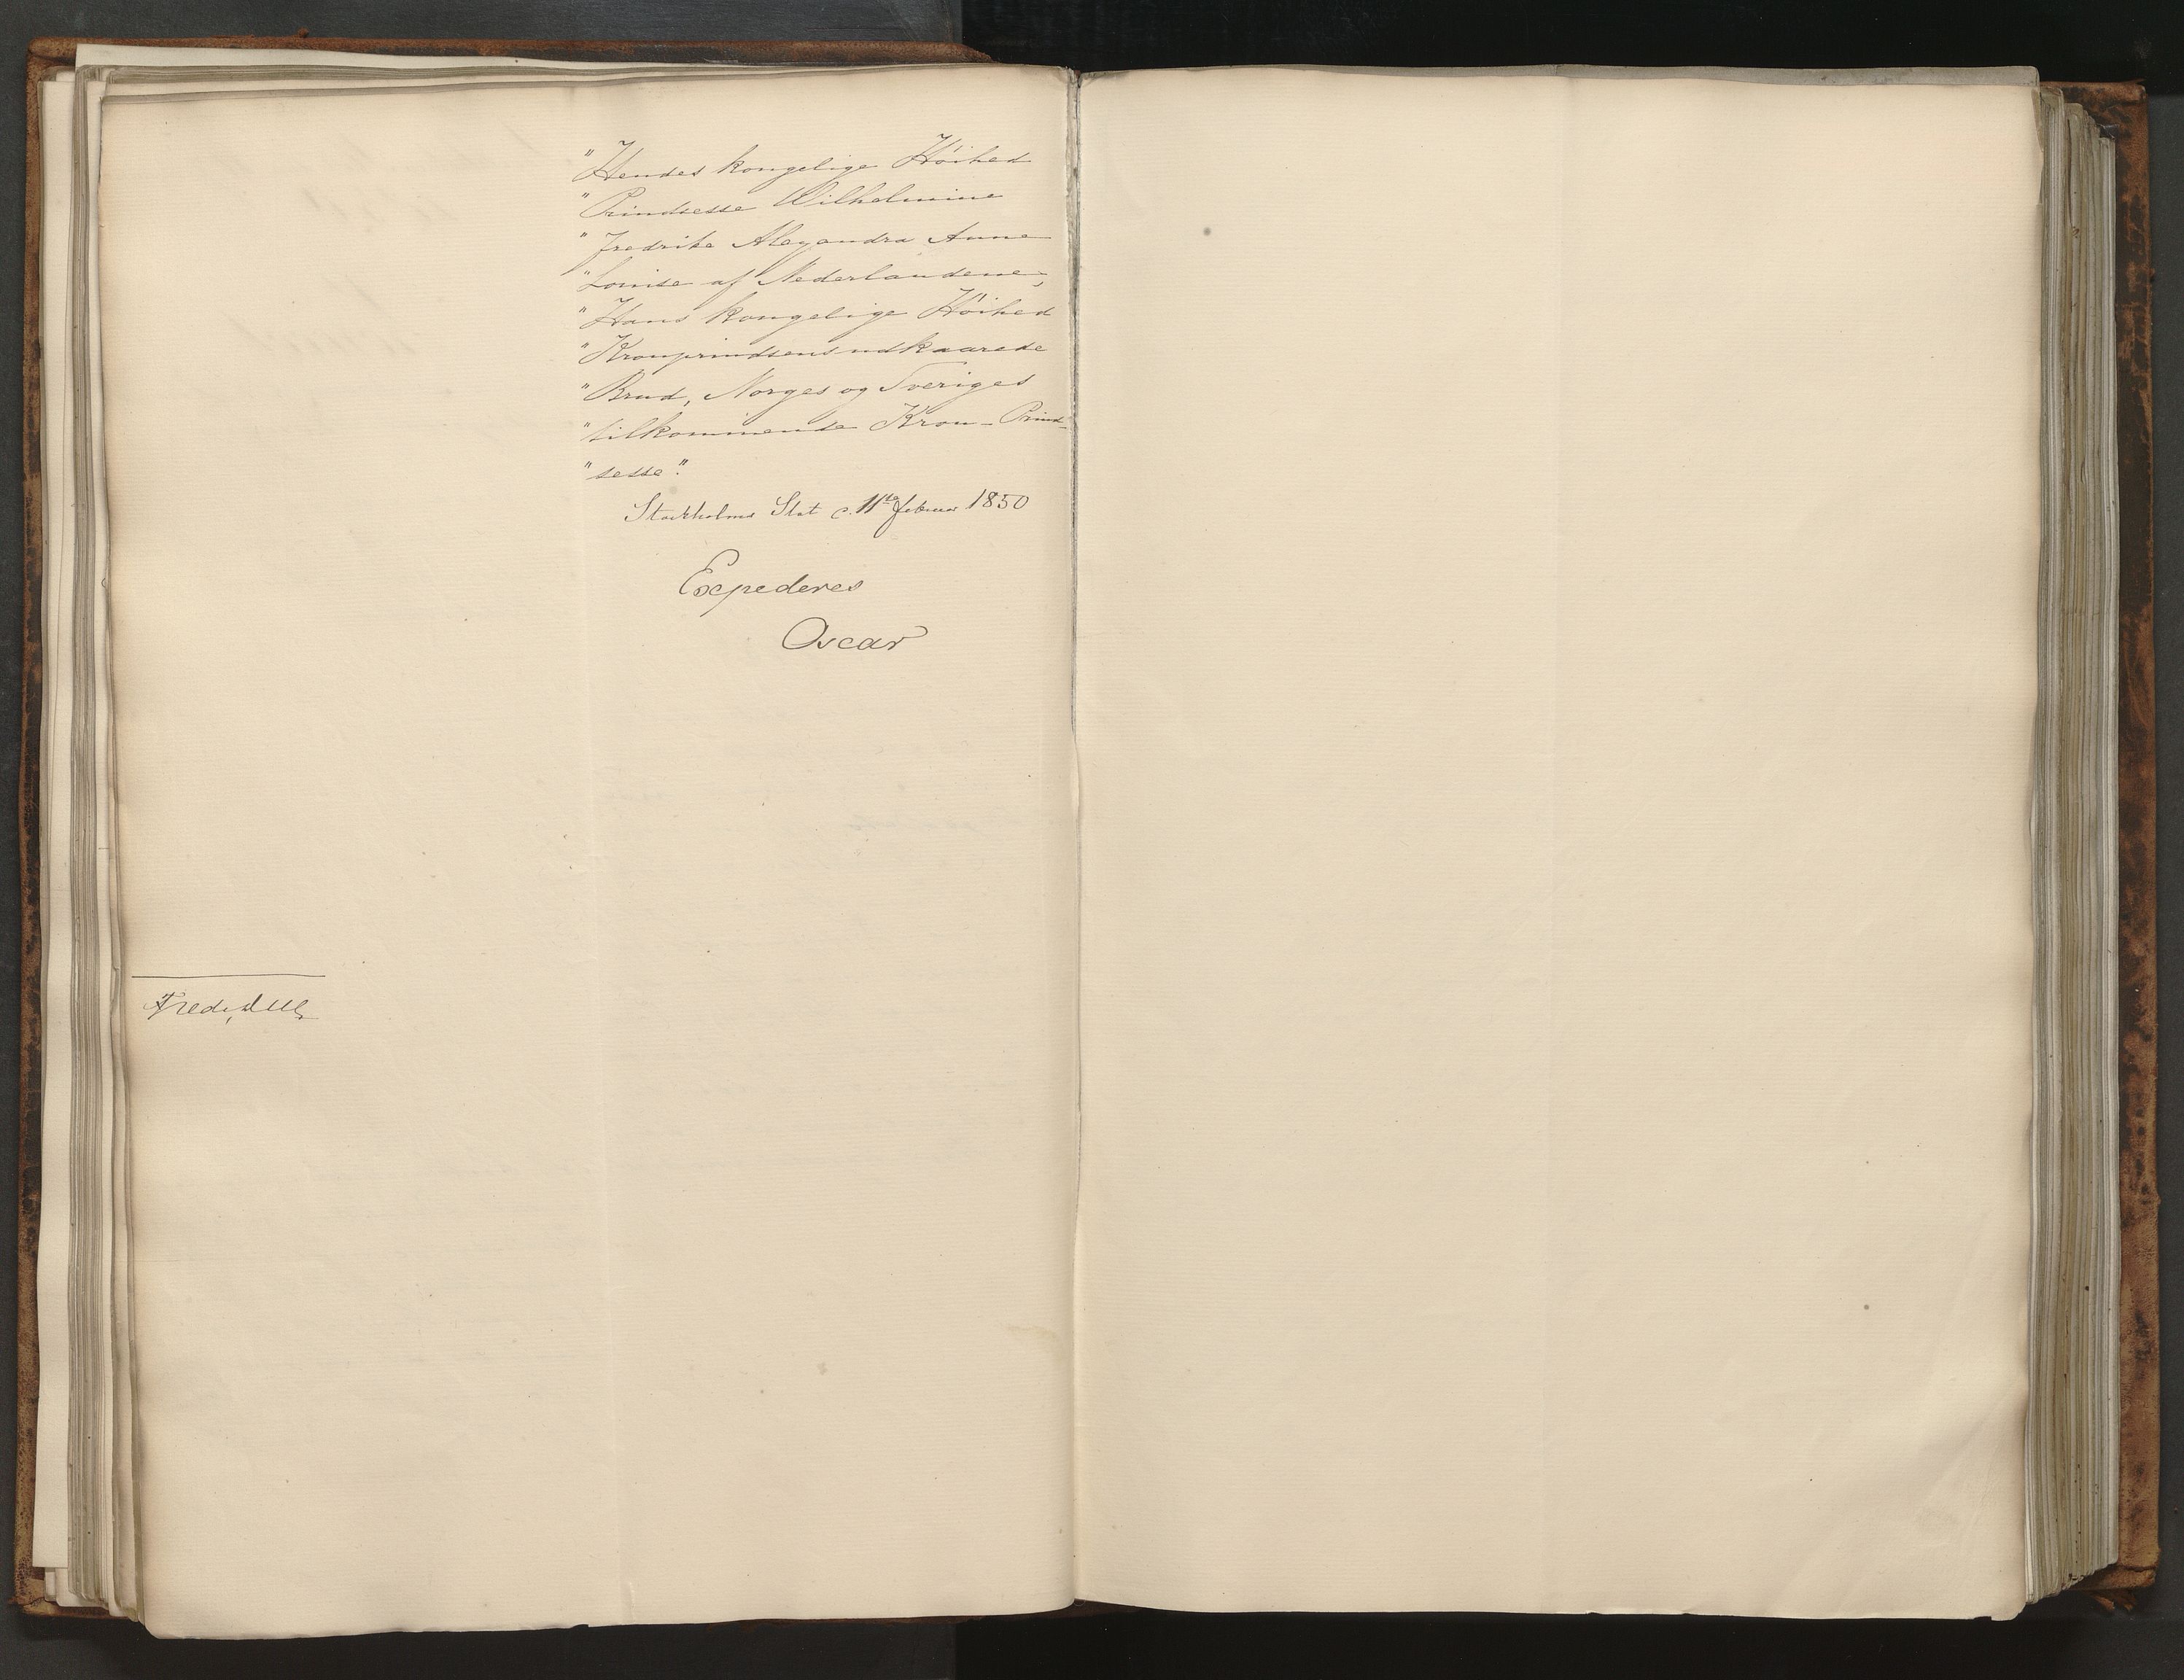 "Hendes kongelige Høihed
"Prindsesse Wilhelmine
"Fredrike Alexandra Anne
"Louise af Nederlandene,
"Hans kongelige Høihed
"Kronprindsens udkaarede
"Brud, Norges og Sveriges
"tilkommende Kron-Prind-
"sesse".
Stockholms Slot d. 11te februar 1850
Expederes
Oscar